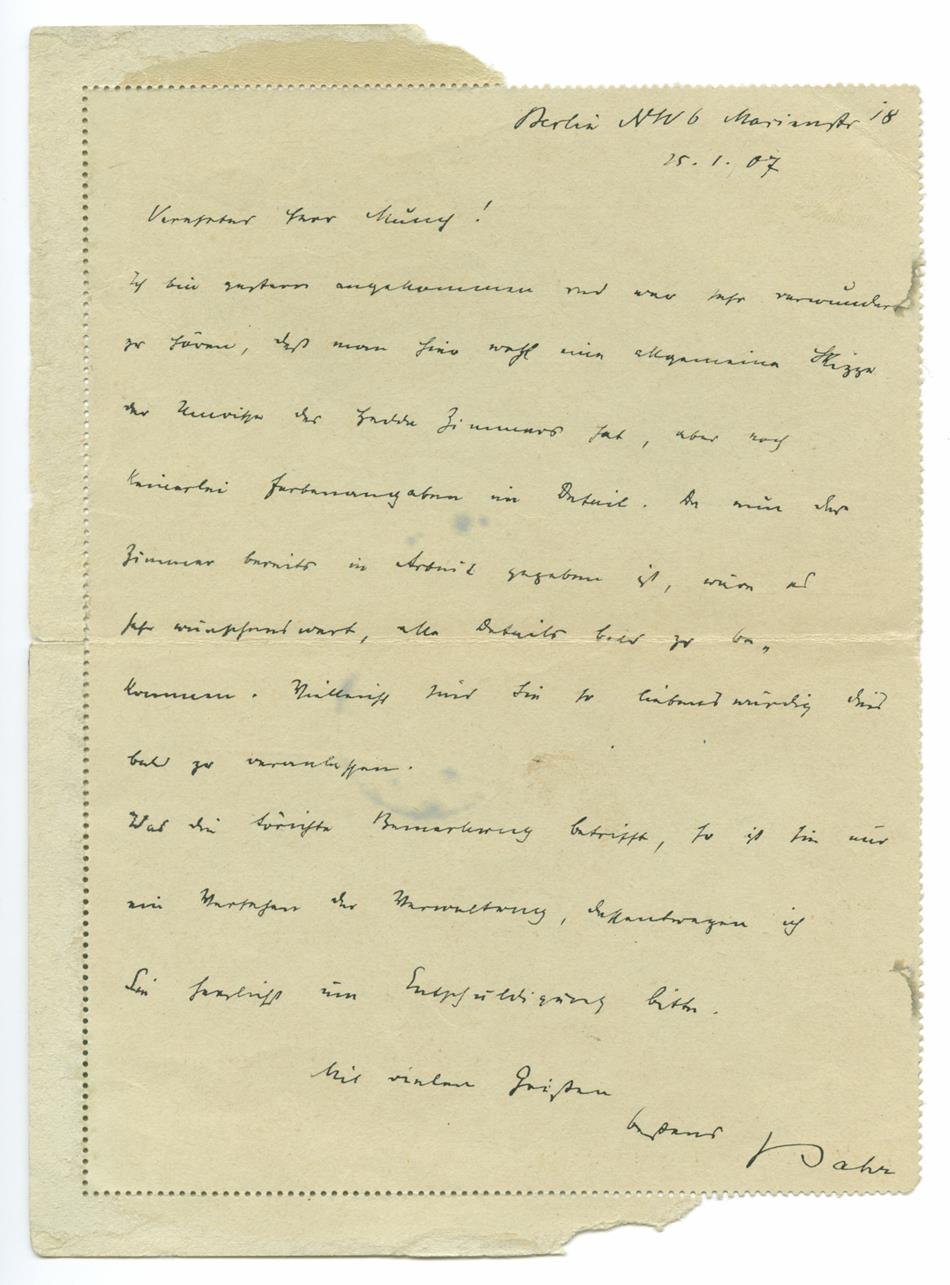 Berlin NW 6 Marienstr 18
25. 1. 07
Verehrter Herr Munch!
Ich bin gestern angekommen und war sehr verwundert
zu hören, daß man hier wohl eine allgemeine Skizze
der Umrisse des Hedda Zimmers hat, aber noch
keinerlei Farbenangaben im Detail. Da nun das
Zimmer bereits in Arbeit gegeben ist, wäre es
sehr wünschenswert, alle Details bald zu be„
kommen. Vielleicht sind Sie so liebenswürdig dies
bald zu veranlassen.
Was die törichte Bemerkung betrifft, so ist sie nur
ein Versehen der Verwaltung, dessentwegen ich
Sie herzlichst um Entschuldigung bitte.
Mit vielen Grüßen
bestens
Bahr